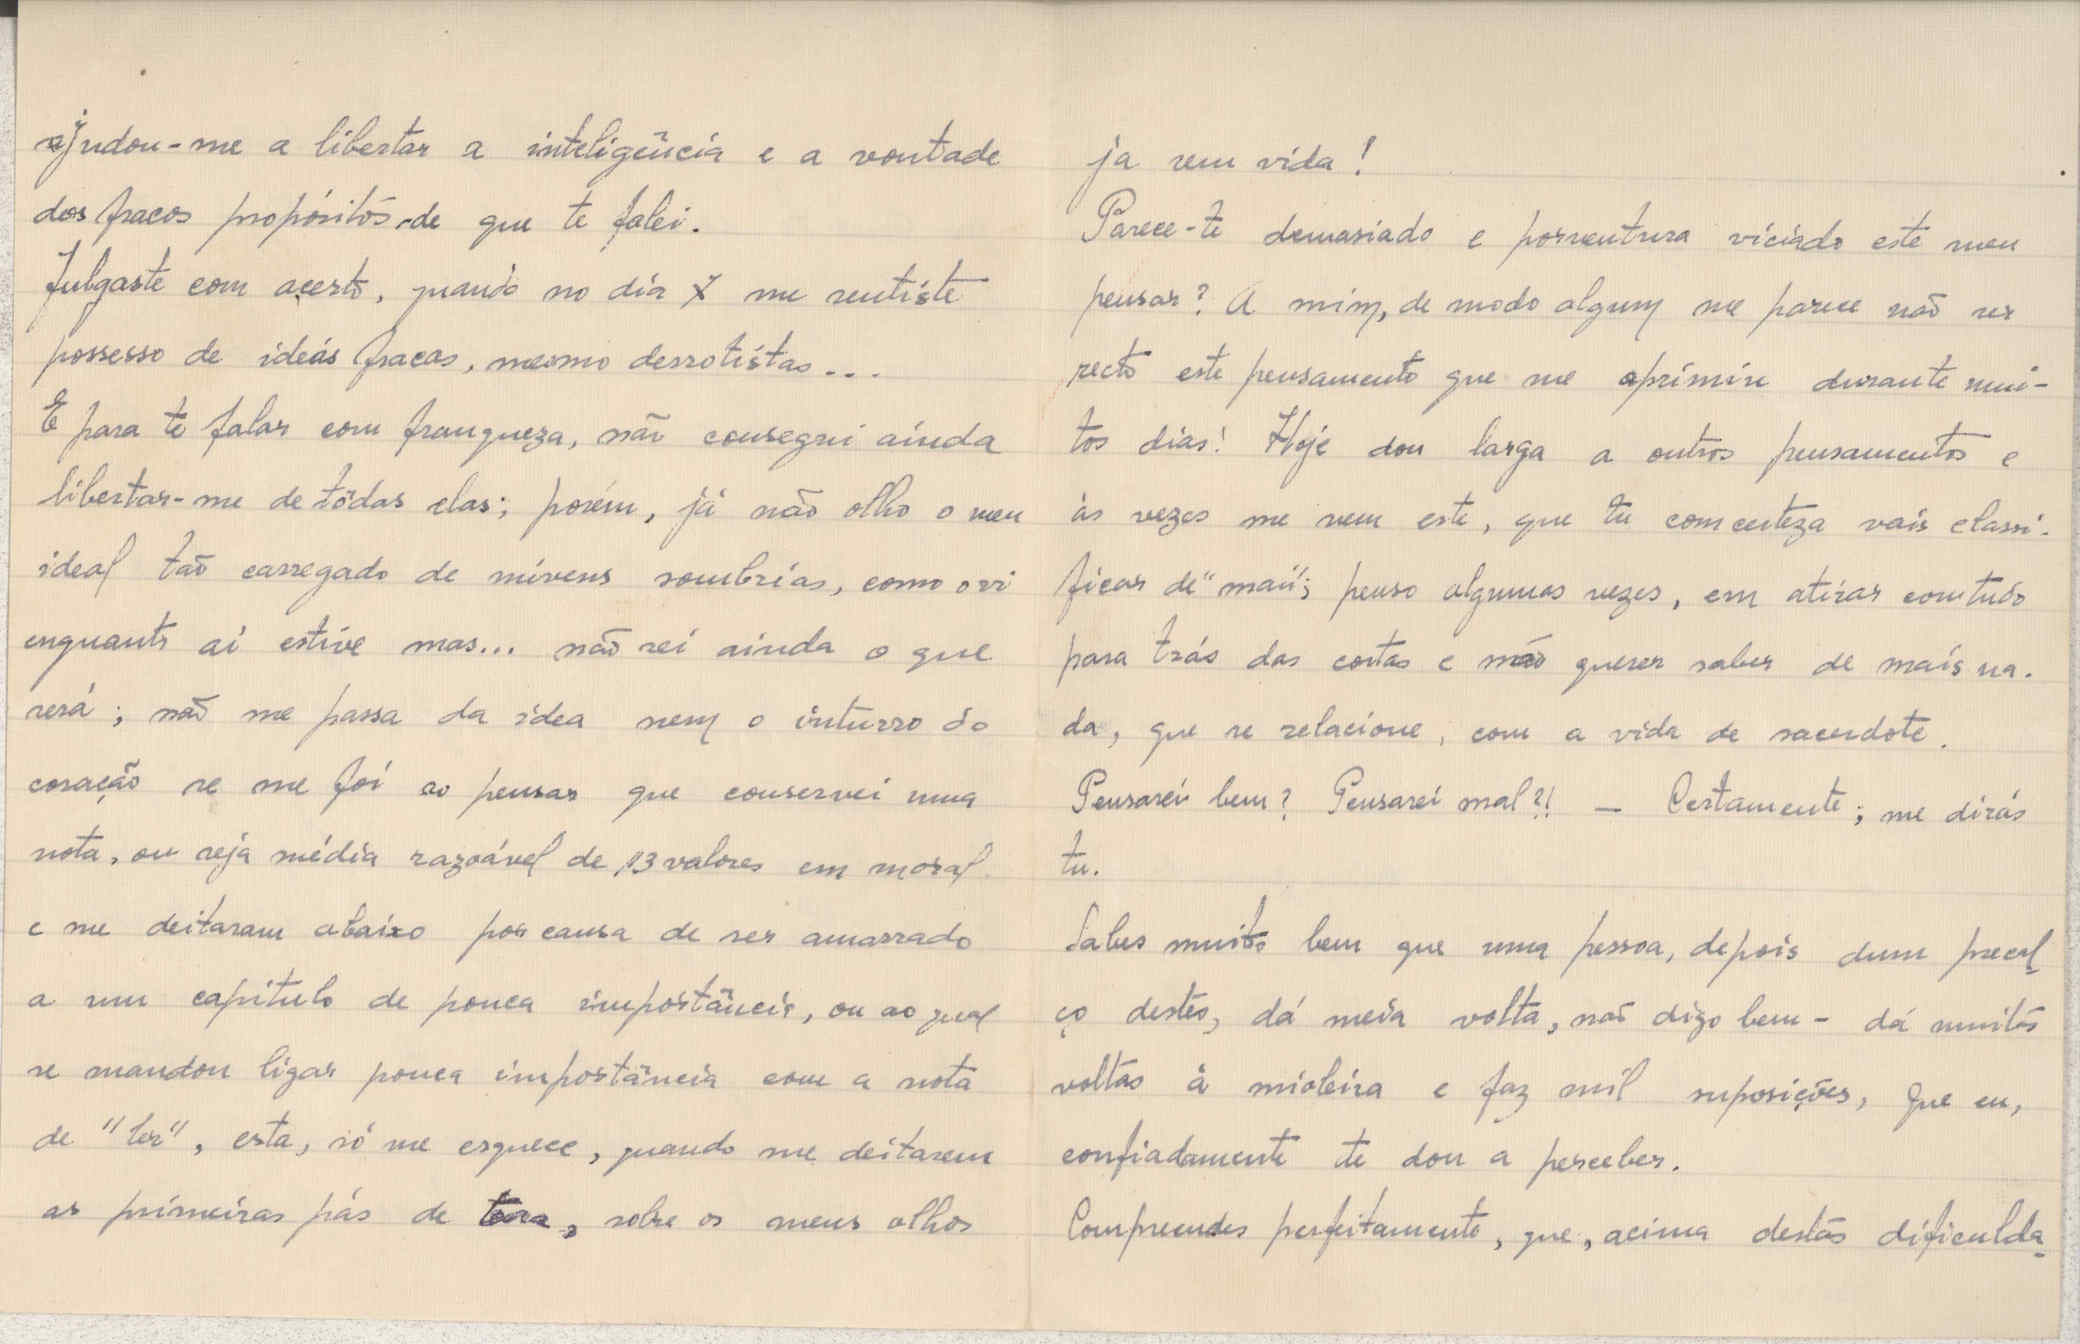 ajudou-me a libertar a inteligência e a vontade
dos fracos propósitos de que te falei.
Julgaste com acerto, quando no dia X me sentiste
possesso de ideás fracas, mesmo derrotistas...
E para te falar com franqueza, não consegui ainda
libertar-me de tôdas elas; porém, já não olho o meu
ideal tão carregado de núvens sombrias, como o vi
enquanto aí estive mas... não sei ainda o que
será; não me passa da idea nem o inturro do
coração se me foi ao pensar que conservei uma
nota, ou seja média razoável de 13 valores em moral
e me deitaram abaixo por causa de ser amarrado
a um capítulo de pouca importância, ou ao qual
se mandou ligar pouca importância com a nota
de "ler", esta, só me esquece, quando me deitarem
as primeiras pás de terra, sobre os meus olhos
ja sem vida!
Parece-te demasiado e porventura viciado este meu
pensar? A mim, de modo algum me parece não ser
recto este pensamento que me oprimiu durante mui-
tos dias! Hoje dou larga a outros pensamentos e
às vezes me vem este, que tu comcerteza vais classi-
ficar de "mau"; penso algumas vezes, em atirar com tudo
para trás das costas e não querer saber de mais na-
da, que se relacione, com a vida de sacerdote.
Pensarei bem? Pensarei mal?! — Certamente; me dirás
tu.
Sabes muito bem que uma pessoa, depois dum precal-
ço destes, dá meia volta, não digo bem - dá muitas
voltas à mioleira e faz mil suposições, que eu,
confiadamente te dou a perceber.
Compreendes perfeitamente, que, acima destas dificulda-